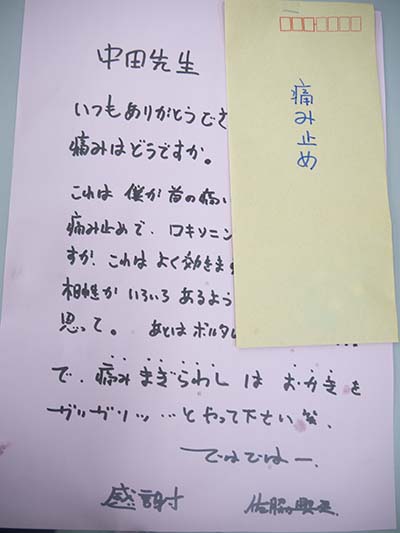 中田先生
いつもありがとうでさ
痛みはどうですか。
これは 僕が首の痛い
痛み止めで、ロキソニン
すが、これは よく効きま
相性が いろいろ あるよう
思って。 あとは ボルタ
で、痛みまぎらわし は おかきを
ガリガリッ…と やって下さい 笑、
ではではー、
感謝
痛み止め